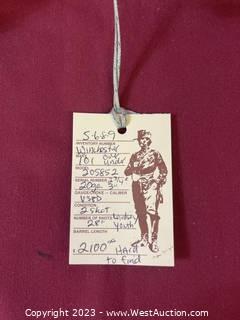 5-689
INVENTORY NUMBER
Winchester
101 over under
MODEL
205852
SERIAL NUMBER 2 3/4"
20ga 3"
GAUGE/CHOKE - CALIBER
USED
CONDITION
2 shot
NUMBER OF SHOTS
28" Youth
BARREL LENGTH
2100.00 Hard
to find
Copyright © 2023 - www.WestAuction.com